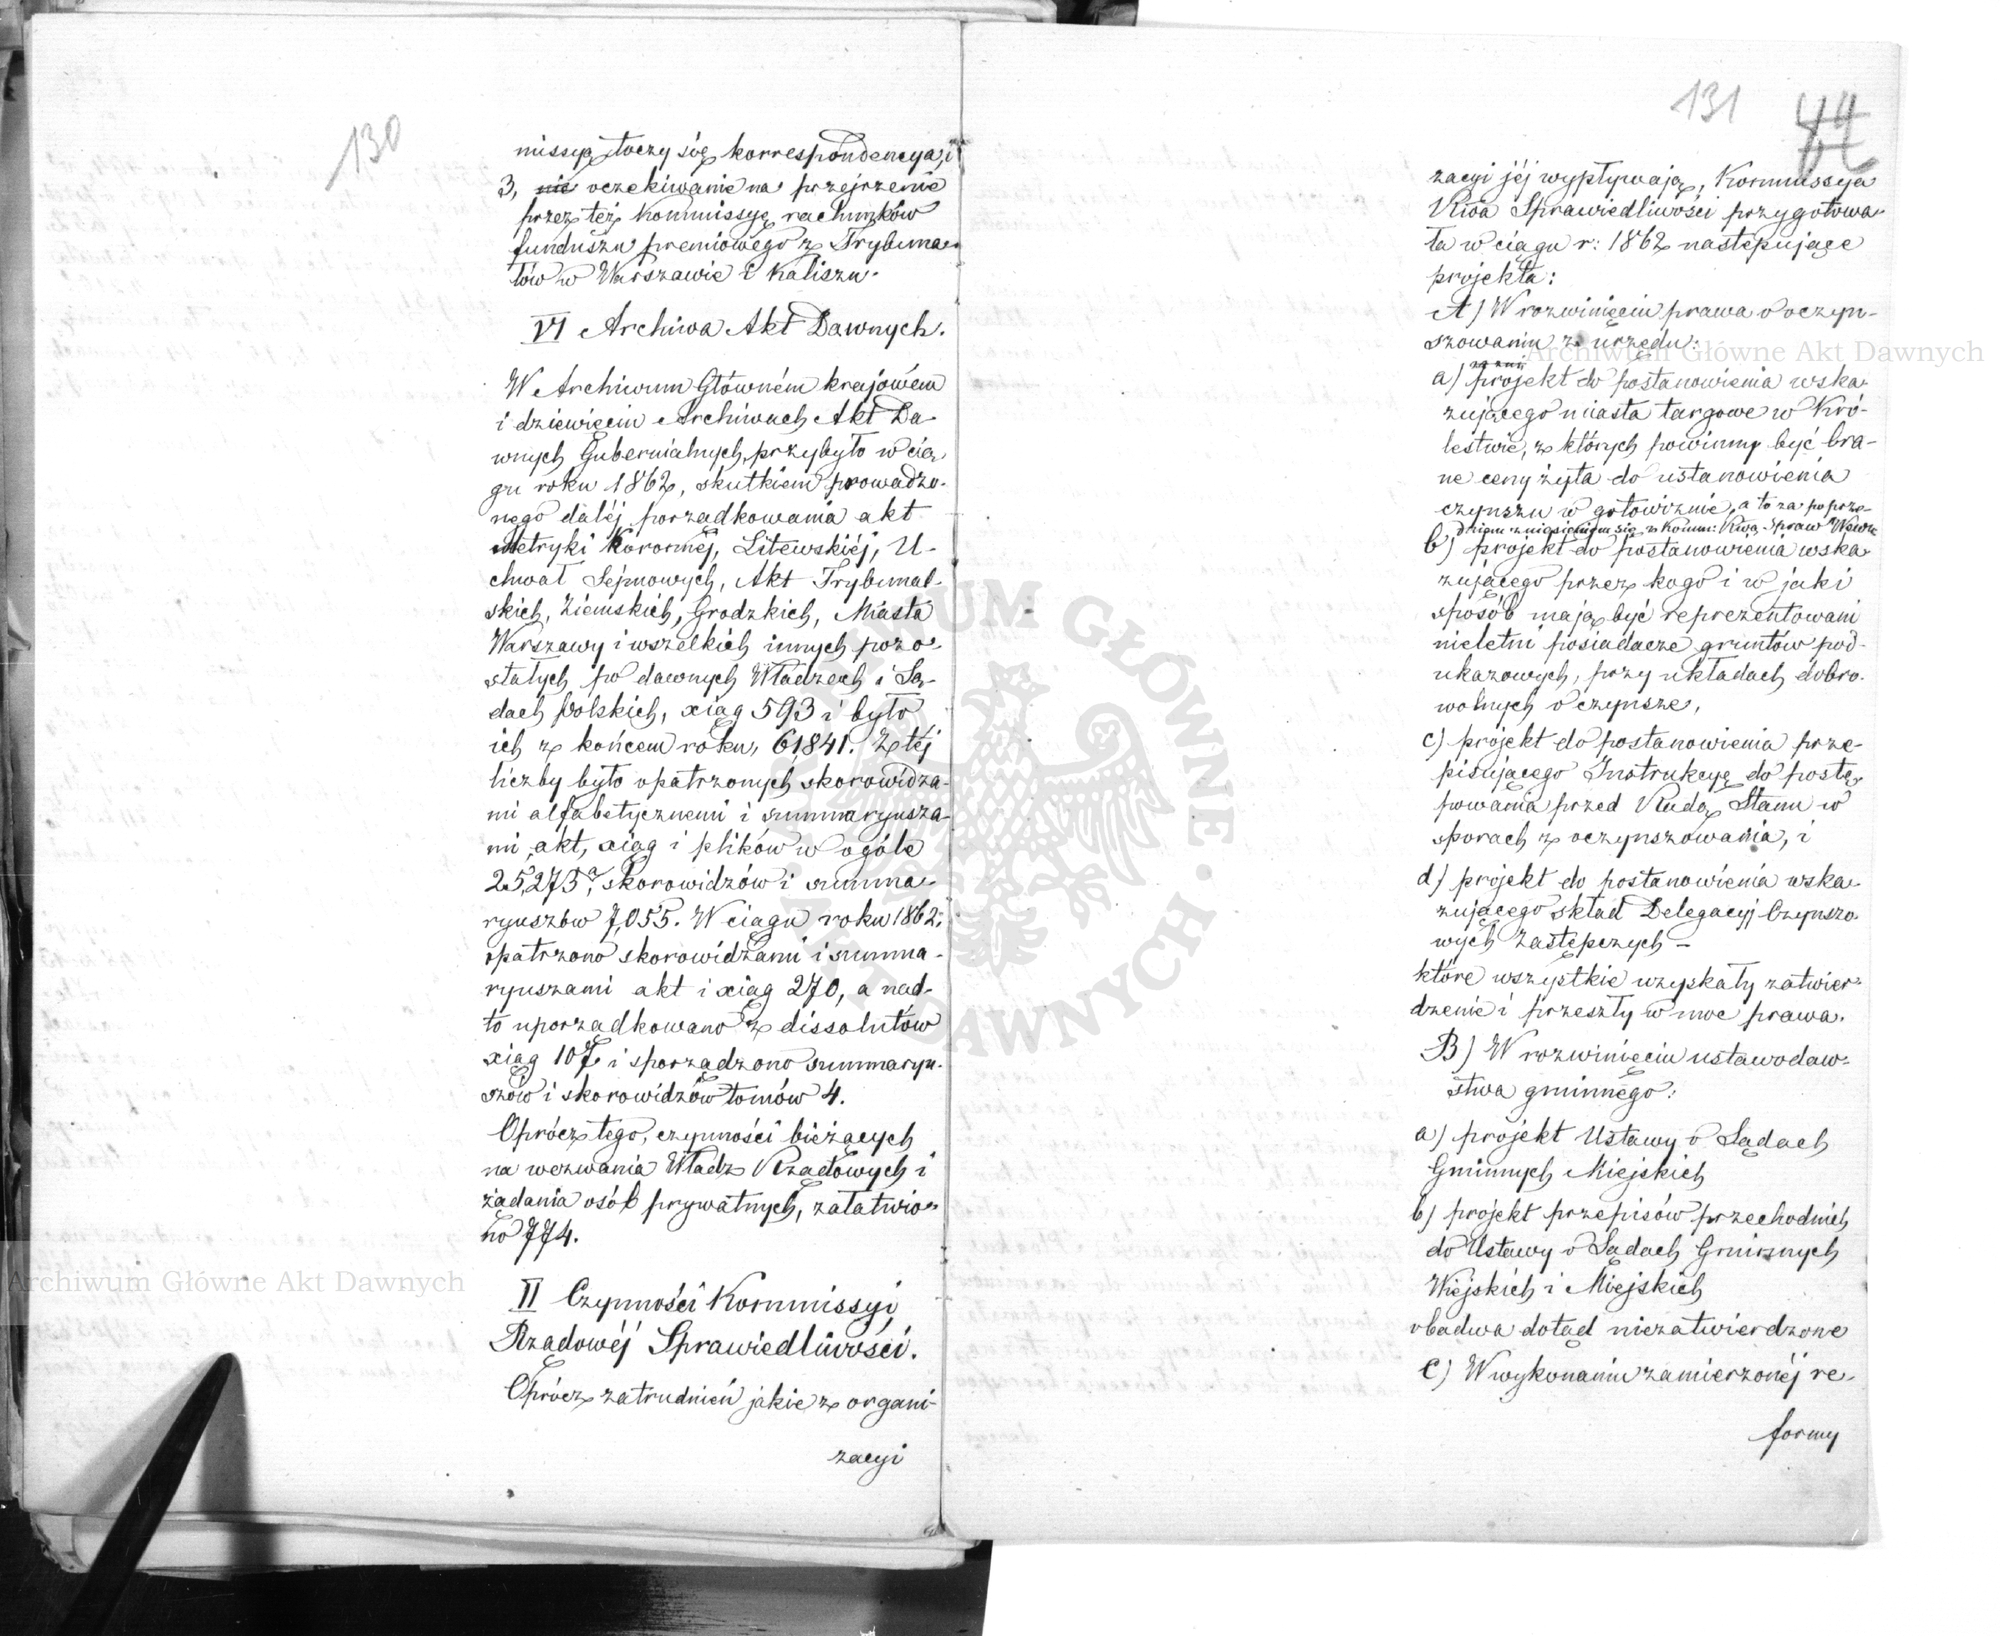 130
missyą toczy się korrespondencya, i
3, nie oczekiwanie na przejrzenie
przez też Kommissyę rachunków
funduszu premiowego z Trybuna-
łów w Warszawie i Kaliszu.
VI Archiwa Akt Dawnych.
W Archiwum Główném krajowém
i dziewięciu Archiwach Akt Da-
wnych Gubernialnych, przybyło w cią-
gu roku 1862, skutkiem prowadzo-
nego daléj porządkowania akt
Metryki Koronnéj, Litewskiéj, U-
chwał Sejmowych, Akt Trybunal-
skich, Ziemskich, Grodzkich, Miasta
Warszawy i wszelkich innych pozo-
stałych po dawnych Władzach i Są-
dach Polskich, xiąg 593 i było
ich z końcem roku, 61841. Z téj
liczby było opatrzonych skorowidza-
mi alfabetycznemi i summaryusza-
mi, akt, xiąg i plików w ogóle
25,273, skorowidzów i summa-
ryuszów 7,055. W ciągu roku 1862.
opatrzono skorowidzami i summa-
ryuszami akt i xiąg 270, a nad-
to uporządkowano z dissolutów
xiąg 107 i sporządzono summaryu-
szów i skorowidzów tomów 4.
Oprócz tego, czynności bieżących
na wezwania Władz Rządowych i
żądania osób prywatnych, załatwio-
no 774.
II Czynności Kommissyi
Rządowéj Sprawiedliwości.
Oprócz zatrudnień jakie z organi-
zacyi
131
zacyi jéj wypływają, Kommissya
Rwa Sprawiedliwości przygotowa-
ła w ciągu r: 1862 następujące
projekta:
A) W rozwinięciu prawa o oczyn-
szowaniu z urzędu:
a) projekt do postanowienia wska-
zującego miasta targowe w Kró-
lestwie, z których powinny być bra-
ne ceny żyta do ustanowienia
czynszu w gotowiznie, a to za poprze-
dniem zniesieniem się z Komm: Rwą Spraw Wewn:
b) projekt do postanowienia wska-
zującego przez kogo i w jaki
sposób mają być reprezentowani
nieletni posiadacze gruntów pod-
ukazowych, przy układach dobro-
wolnych o czynsze,
c) projekt do postanowienia prze-
pisującego Instrukcyę do postę-
powania przed Radą Stanu w
sporach z oczynszowania, i
d) projekt do postanowienia wska-
zującego skład Delegacyj Czynszo-
wych Zastępczych –
które wszystkie uzyskały zatwier-
dzenie i przeszły w moc prawa.
B) W rozwinięciu ustawodaw-
stwa gminnego:
a) projekt Ustawy o Sądach
Gminnych Miejskich
b) projekt przepisów przechodnich
do Ustawy o Sądach Gminnych
Wiejskich i Miejskich
obadwa dotąd niezatwierdzone
C) W wykonaniu zamierzonéj re-
formy
Archiwum Główne Akt Dawnych
Archiwum Główne Akt Dawnych
ARCHIWUM GŁÓWNE · AKT DAWNYCH ·